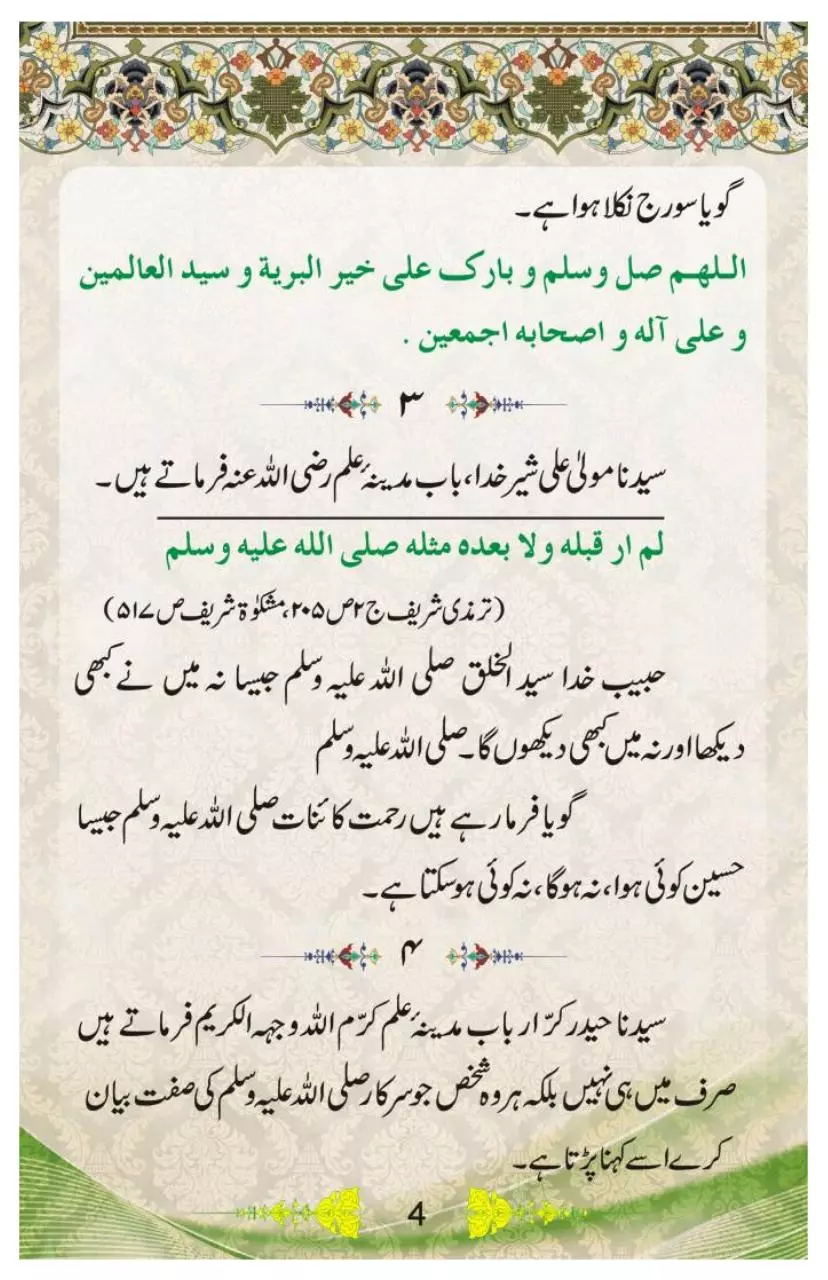 گویا سورج نکلا ہوا ہے۔
اللهم صل وسلم و بارک علی خیر البریة و سید العالمین
و علی آله و اصحابه اجمعین .
۳
سیدنا مولیٰ علی شیر خدا، باب مدینۂ علم رضی اللہ عنہ فرماتے ہیں۔
لم ار قبله ولا بعده مثله صلی الله علیه وسلم
(ترمذی شریف ج۲ص۲۰۵، مشکوٰۃ شریف ص۵۱۷)
حبیب خدا سید الخلق صلی اللہ علیہ وسلم جیسا نہ میں نے کبھی
دیکھا اور نہ میں کبھی دیکھوں گا۔ صلی اللہ علیہ وسلم
گویا فرما رہے ہیں رحمت کائنات صلی اللہ علیہ وسلم جیسا
حسین کوئی ہوا، نہ ہوگا، نہ کوئی ہوسکتا ہے۔
۴
سیدنا حیدر کرّار باب مدینۂ علم کرّم اللہ وجہہ الکریم فرماتے ہیں
صرف میں ہی نہیں بلکہ ہر وہ شخص جو سرکار صلی اللہ علیہ وسلم کی صفت بیان
کرے اسے کہنا پڑتا ہے۔
4